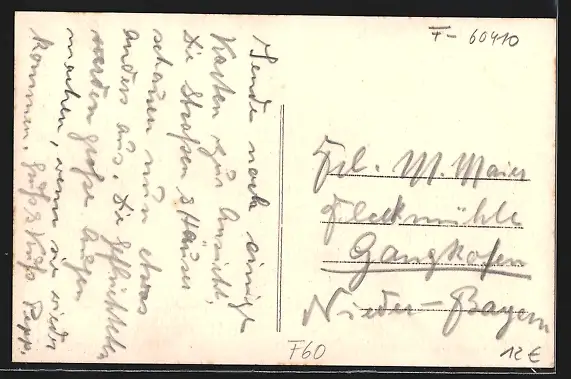 Sende noch einige
Karten zur Ansicht,
Die Strassen & Häuser
schauen nun etwas
anders aus. Die Geflüchteten
werden große Augen
machen, wenn sie wieder
kommen. Gruß & Kuß Pepp.
60410
Frl. M. Maier
Fleckmühle
Gangkofen
Nieder-Bayern
F60
12€